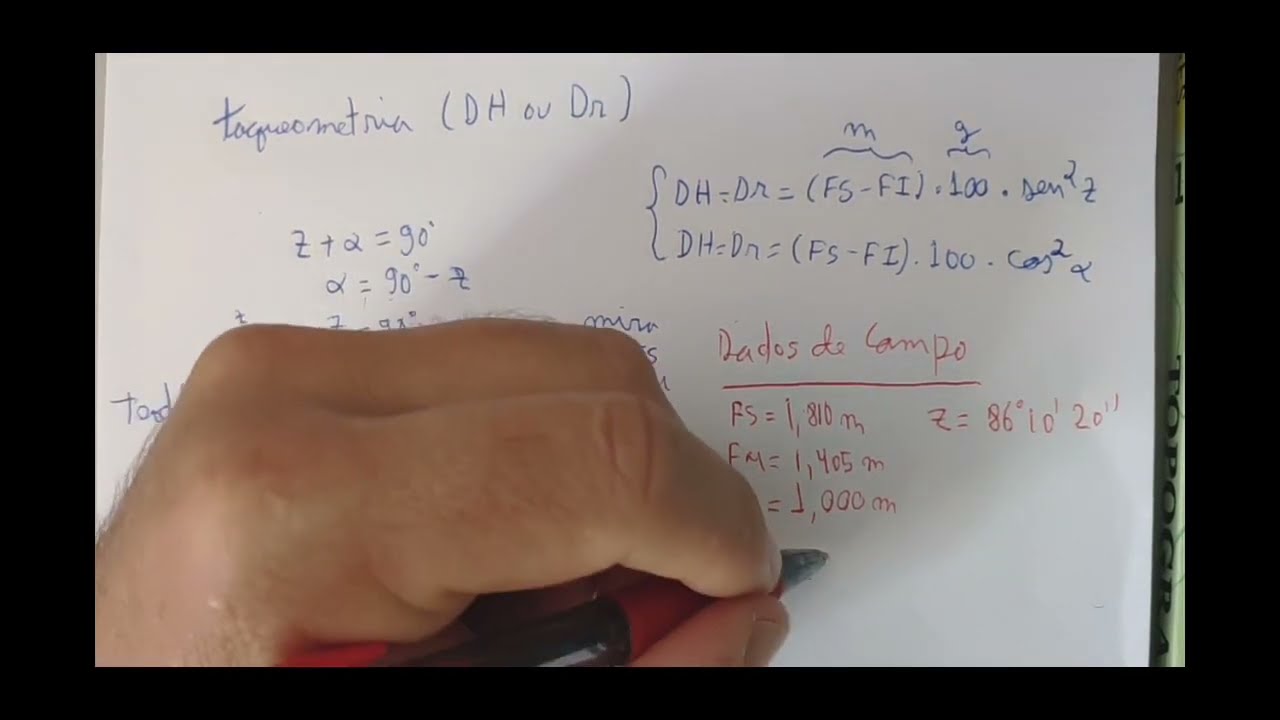 taqueometria (DH ou Dr)
m g
DH=Dr = (FS-FI).100. sen²z
DH=Dr = (FS-FI).100. cos²α
z+α=90°
α=90°-z
z
mira
Dados de Campo
FS=1,810 m z= 86°10'20''
FM= 1,405 m
= 1,000 m
TOPOGRA
1